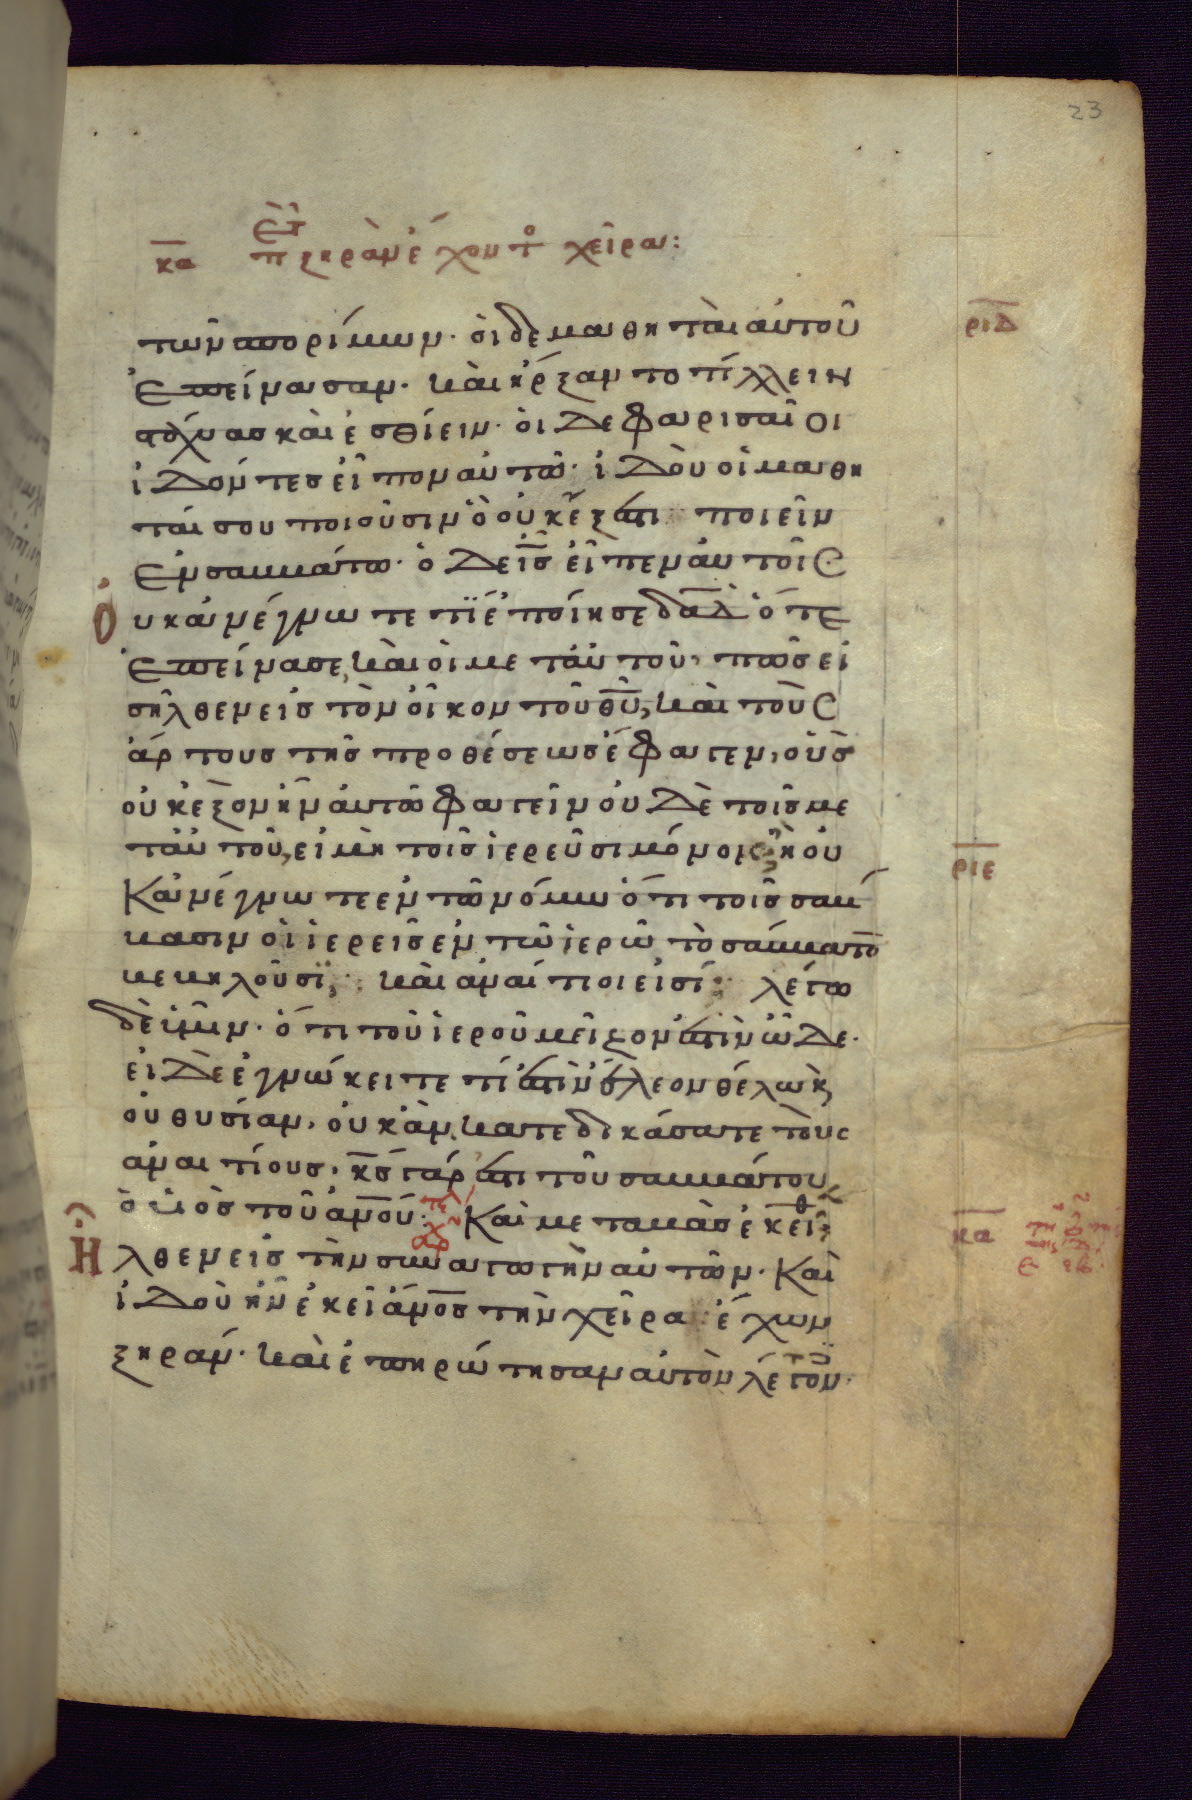 23
κα π ξηρὰν ἔχοντο χεῖρα:
τῶν σπορίμων· οἱ δε μαθηται αὐτοῦ ριδ
ἐπείνασαν· και ἠρξαντο τίλλειν
στάχυασ και ἐσθίειν· οἱ δε φαρισαῖοι
ἰδόντεσ εἶπον αὐτῶ· ἰδοὺ οἱ μαθη
ταί σου ποιοῦσιν ὃ οὐκ ἔξεστι ποιεῖν
ἐν σαββάτω· ὁ δε ι̅σ̅ εἶπεν αὐτοῖς
Ουκ ἀνέγνωτε τί ἐποίησε δα̅δ̅ ὅτε
ἐπείνασε, και οἱ μετ αὐτοῦ, πῶσ εἰ
σῆλθεν εἰσ τὸν οἶκον τοῦ θ̅υ̅, και τοὺς
ἄρτουσ τῆσ προθέσεωσ ἔφαγεν, οὓσ
οὐκ ἐξὸν ἦν αὐτῶ φαγεῖν οὐδὲ τοῖσ με
τ αὐτοῦ, εἰ μὴ τοῖσ ἱερεῦσι μόνον· ἢ οὐ ριε
Κἀνέγνωτε ἐν τῶ νόμω ὅτι τοῖσ σαβ
βασιν οἱ ἱερεῖσ ἐν τῶ ἱερῶ τὸ σάββατον
βεβηλοῦσϊ, και ἀναίτιοι εἰσί· λέγω
δὲ ὑμῖν· ὅτι τοῦ ἱεροῦ μεῖζον ἐστὶν ὧδε·
εἰ δὲ ἐγνώκειτε τί ἐστὶν ἔλεον θέλω κ
οὐ θυσίαν, οὐκ ἂν κατεδικάσατε τοὺς
ἀναιτίουσ, κ̅σ̅ γάρ ἐστι τοῦ σαββάτου
ὁ υἱὸσ τοῦ ἀν̅ου̅: τελ αρχ Καὶ μεταβὰσ ἐκεῖθ κα
Ηλθεν εἰσ τὴν συναγωγὴν αὐτῶν· Καὶ
ἰδοὺ ἦν ἐκεῖ ἄν̅οσ̅ τὴν χεῖρα ἔχων
ξηράν· και ἐπηρώτησαν αὐτὸν λέγον